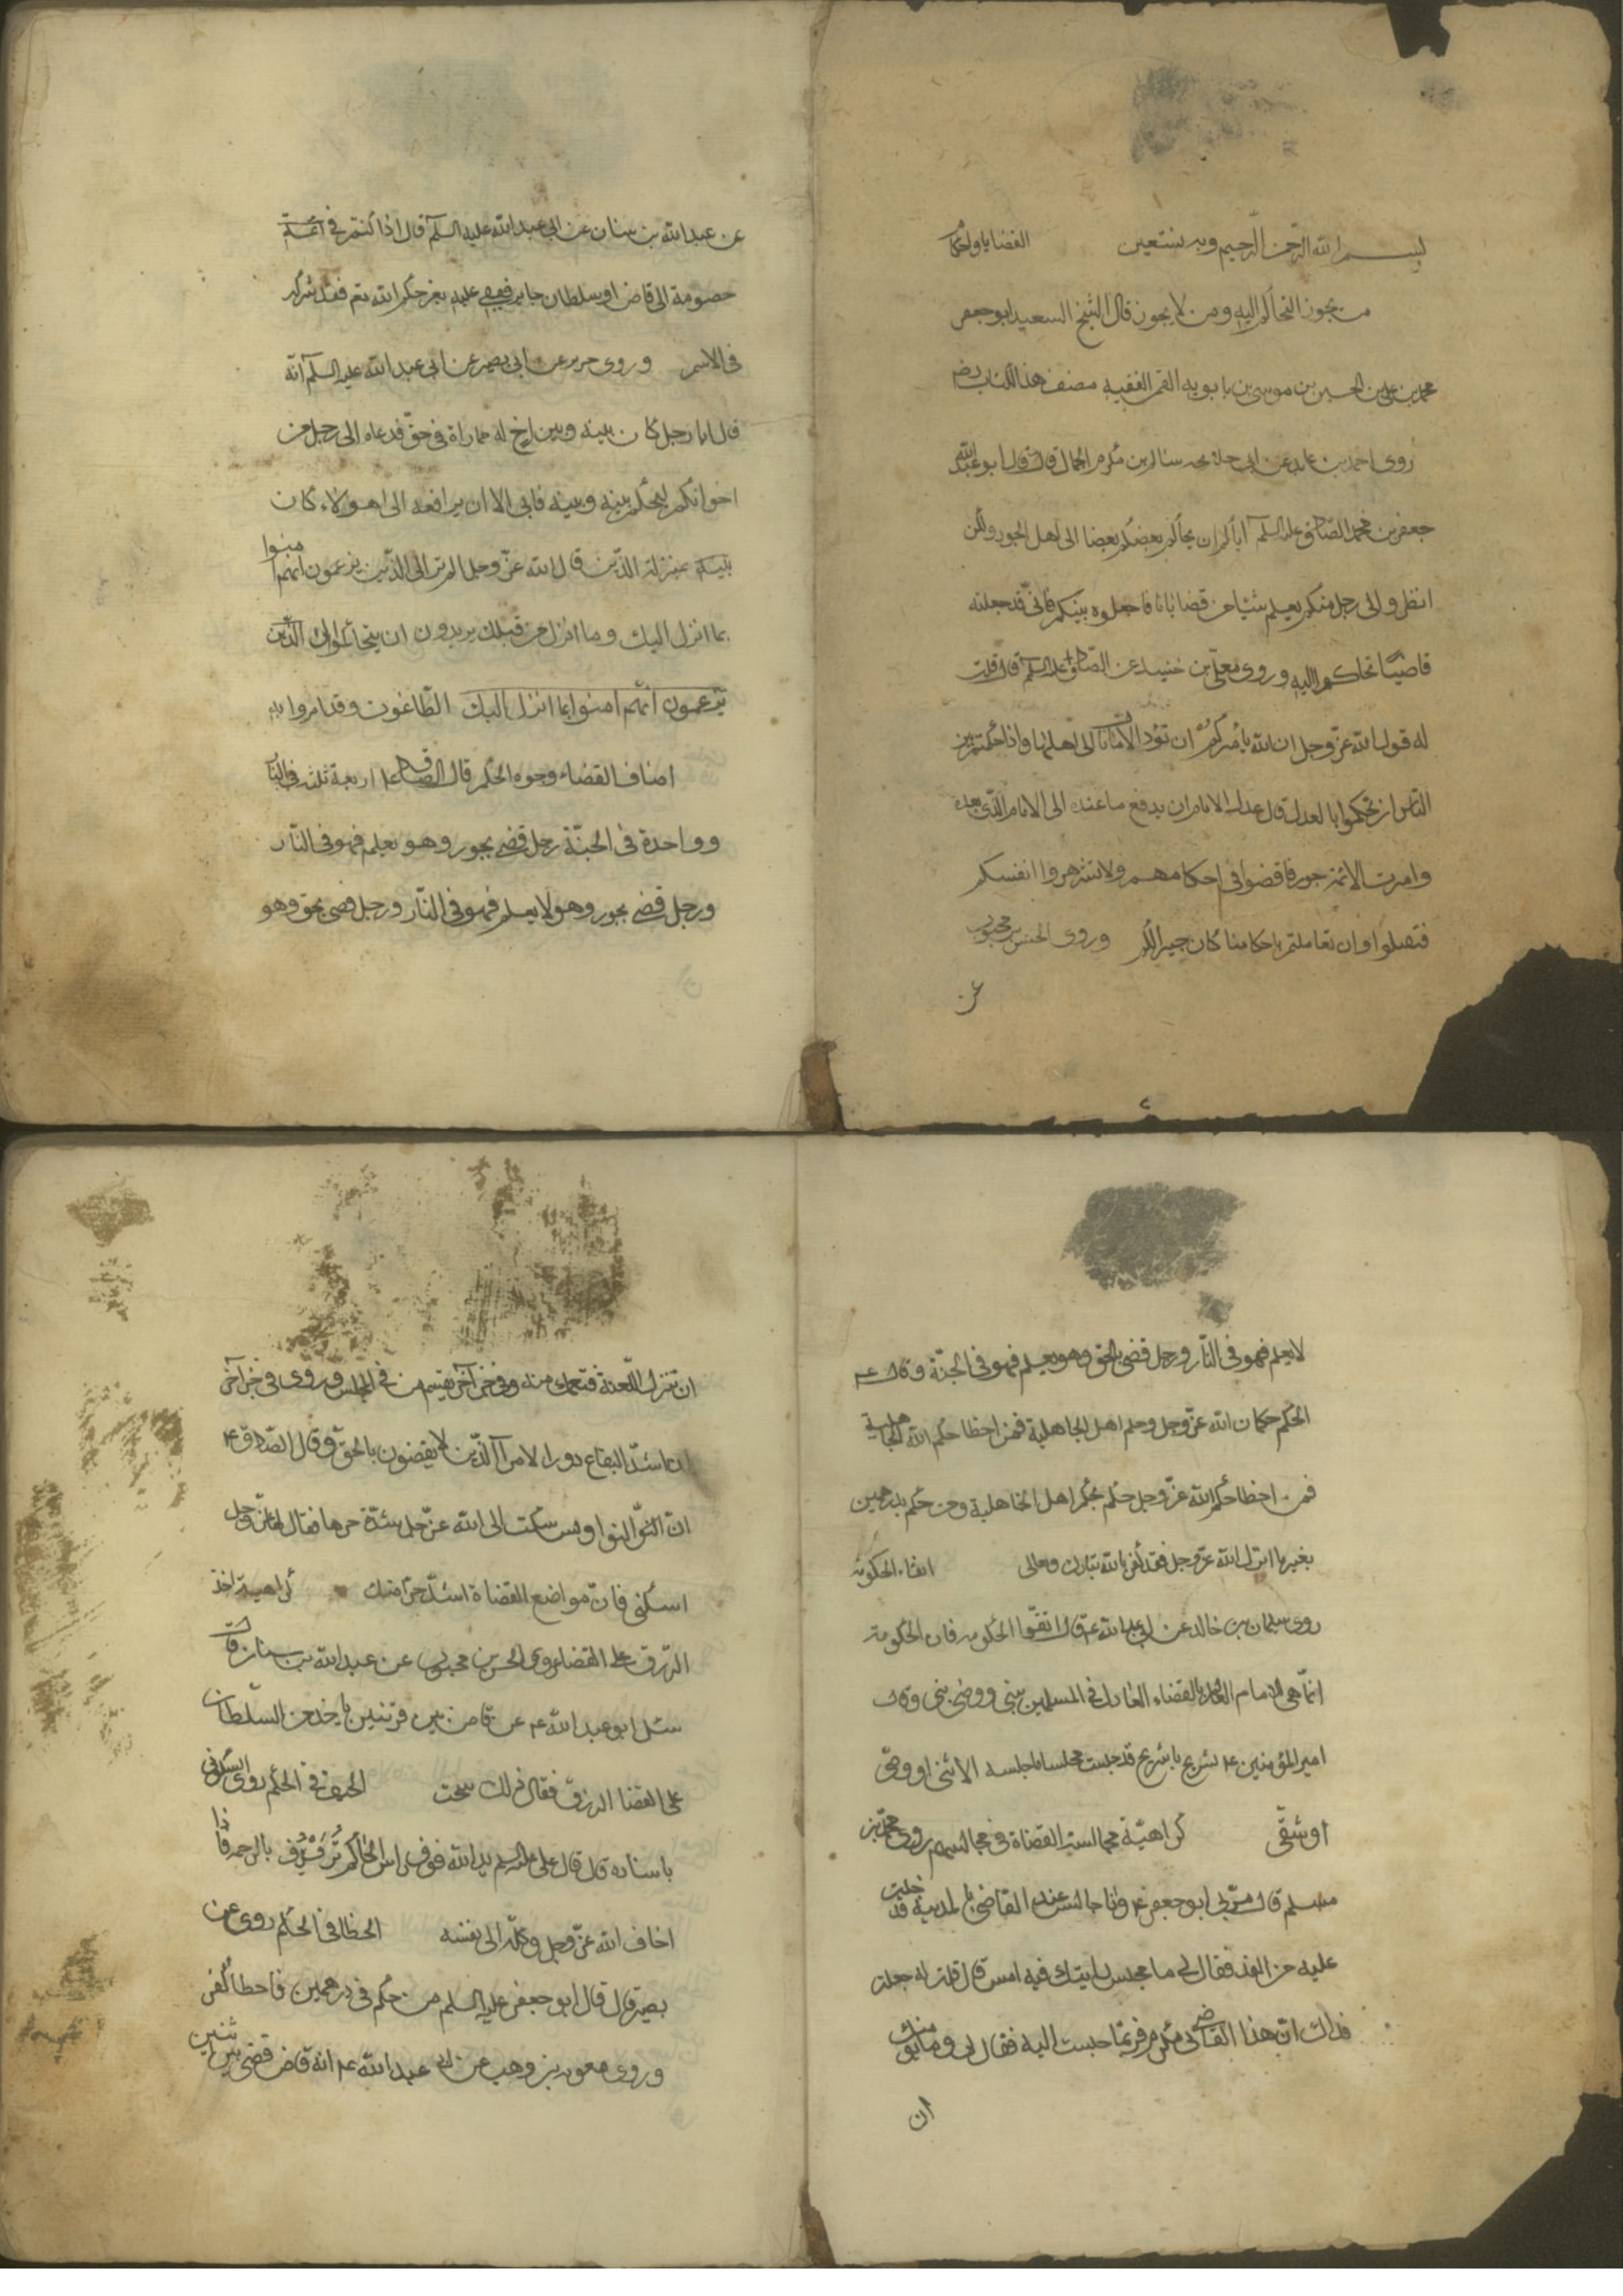 بسم الله الرحمن الرحيم وبه نستعين القضايا والاحكام
من يجوز التحاكم اليه ومن لا يجوز قال الشيخ السعيد ابو جعفر
محمد بن علي بن الحسين بن موسى بن بابويه القمي الفقيه مصنف هذا الكتاب رضه
روى احمد بن عايد عن ابي خديجه سالم بن مكرم الجمال قال قال ابو عبد الله
جعفر بن محمد الصادق عليه السلم اياكم ان يحاكم بعضكم بعضا الى اهل الجور ولكن
انظروا الى رجل منكم يعلم شيئا من قضايانا فاجعلوه بينكم فاني قد جعلته
قاضيا فتحاكموا اليه وروى معلى بن خنيس عن الصادق عليه السلم قال قلت
له قول الله عز وجل ان الله يأمركم ان تؤدوا الامانات الى اهلها واذا حكمتم بين
الناس ان تحكموا بالعدل قال عدل الامام ان يدفع ما عنده الى الامام الذي بعده
وامرت الائمة جور فاقضوا في احكامهم ولا تشهروا انفسكم
فتقتلوا وان تعاملتم باحكامنا كان خيرا لكم وروى الحسن بن محبوب
عن
عن عبد الله بن سنان عن ابي عبد الله عليه السلم قال اذا كنتم في ائمة
خصومة الى قاض او سلطان جاير فقضى عليه بغير حكم الله تع فقد شركه
في الاسم وروى حريز عن ابي بصير عن ابي عبد الله عليه السلم انه
قال ايما رجل كان بينه وبين اخ له مماراة في حق فدعاه الى رجل من
اخوانكم ليحكم بينه وبينه فابى الا ان يرافعه الى هولاء كان
بمنزلة الذين قال الله عز وجل الم تر الى الذين يزعمون انهم امنوا
بما انزل اليك وما انزل من قبلك يريدون ان يتحاكموا الى الذين
يزعمون انهم امنوا بما انزل اليك الطاغوت وقد امروا به
اصناف القضاء وجوه الحكم قال الصادق ع اربعة ثلثة في النار
وواحدة في الجنة رجل قضى بجور وهو يعلم فهو في النار
ورجل قضى بجور وهو لا يعلم فهو في النار ورجل قضى بحق وهو
لا يعلم فهو في النار ورجل قضى بالحق وهو يعلم فهو في الجنة وقال ع
الحكم حكمان الله عز وجل وحكم اهل الجاهلية فمن اخطا حكم الله الجاهلية
فمن اخطا حكم الله عز وجل حكم بحكم اهل الجاهلية ومن حكم بدرهمين
بغير ما انزل الله عز وجل فقد كفر بالله تبارك وتعالى اتقاء الحكومة
روى سليمان بن خالد عن ابي عبد الله ع قال اتقوا الحكومة فان الحكومة
انما هي للامام العالم بالقضاء العادل في المسلمين نبي ووصي نبي وقال
امير المؤمنين ع لشريح يا شريح قد جلست مجلسا ما جلسه الا نبي او وصي
او شقي كراهية مجالسة القضاة في مجالسهم روى محمد بن
مسلم قال مر بي ابو جعفر ع وانا جالس عند القاضي بالمدينة فدخلت
عليه من الغد فقال لي ما مجلس رايتك فيه امس قال قلت له جعلت
فداك ان هذا القاضي لي مكرم فربما جلست اليه فقال لي وما يؤمنك
ان
ان تنزل اللعنة فتعمك معه وفي خبر آخر فيعم من في المجلس وروى في خبر آخر
ان اشد البقاع دور الامرآ الذين لا يقضون بالحق وقال الصادق ع
ان النواويس شكت الى الله عز وجل شدة حرها فقال لها عز وجل
اسكني فان مواضع القضاة اشد حرا منك كراهية اخذ
الرزق على القضاء روى الحسن بن محبوب عن عبد الله بن سنان قال
سئل ابو عبد الله ع عن قاض بين قريتين يأخذ من السلطان
على القضا الرزق فقال ذلك سحت الحيف في الحكم روى السكوني
باسناده قال قال علي عليه السلم يد الله فوق راس الحاكم ترفرف بالرحمة فاذا
اخاف الله عز وجل وكله الى نفسه الخطا في الحكم روى عن
بصير قال قال ابو جعفر عليه السلم من حكم في درهمين فاخطأ كفر
وروى معوية بن وهب عن ابي عبد الله ع انه قاض قضى بين اثنين